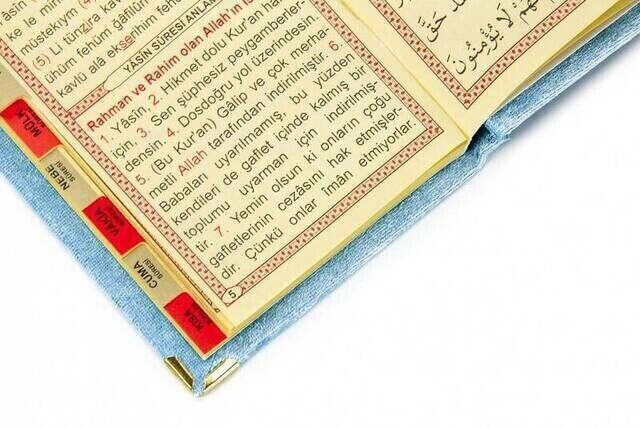 ke le mi
müstekıym (4)
(5) Li tünzira kav
ühüm fehüm ğafilûn
kavlü alâ ekserihim fehüm
YÂSİN SÛRESİ ANLAMI
Rahman ve Rahim olan Allah'ın is
1. Yâsîn, 2. Hikmet dolu Kur'an ha
için, 3. Sen şüphesiz peygamberler-
densin. 4. Dosdoğru yol üzerindesin.
5. (Bu Kur'an) Gâlip ve çok merha-
metli Allah tarafından indirilmiştir. 6.
Babaları uyarılmamış, bu yüzden
kendileri de gaflet içinde kalmış bir
toplumu uyarman için indirilmiş-
tir. 7. Yemin olsun ki onların çoğu
gafletlerinin cezâsını hak etmişler-
dir. Çünkü onlar îmân etmiyorlar.
5
MÜLK
NEBE
SÛRESİ
VAKIA
CUMA
SÛRESİ
KISA
حَقَّ
لَا يُؤْمِنُونَ